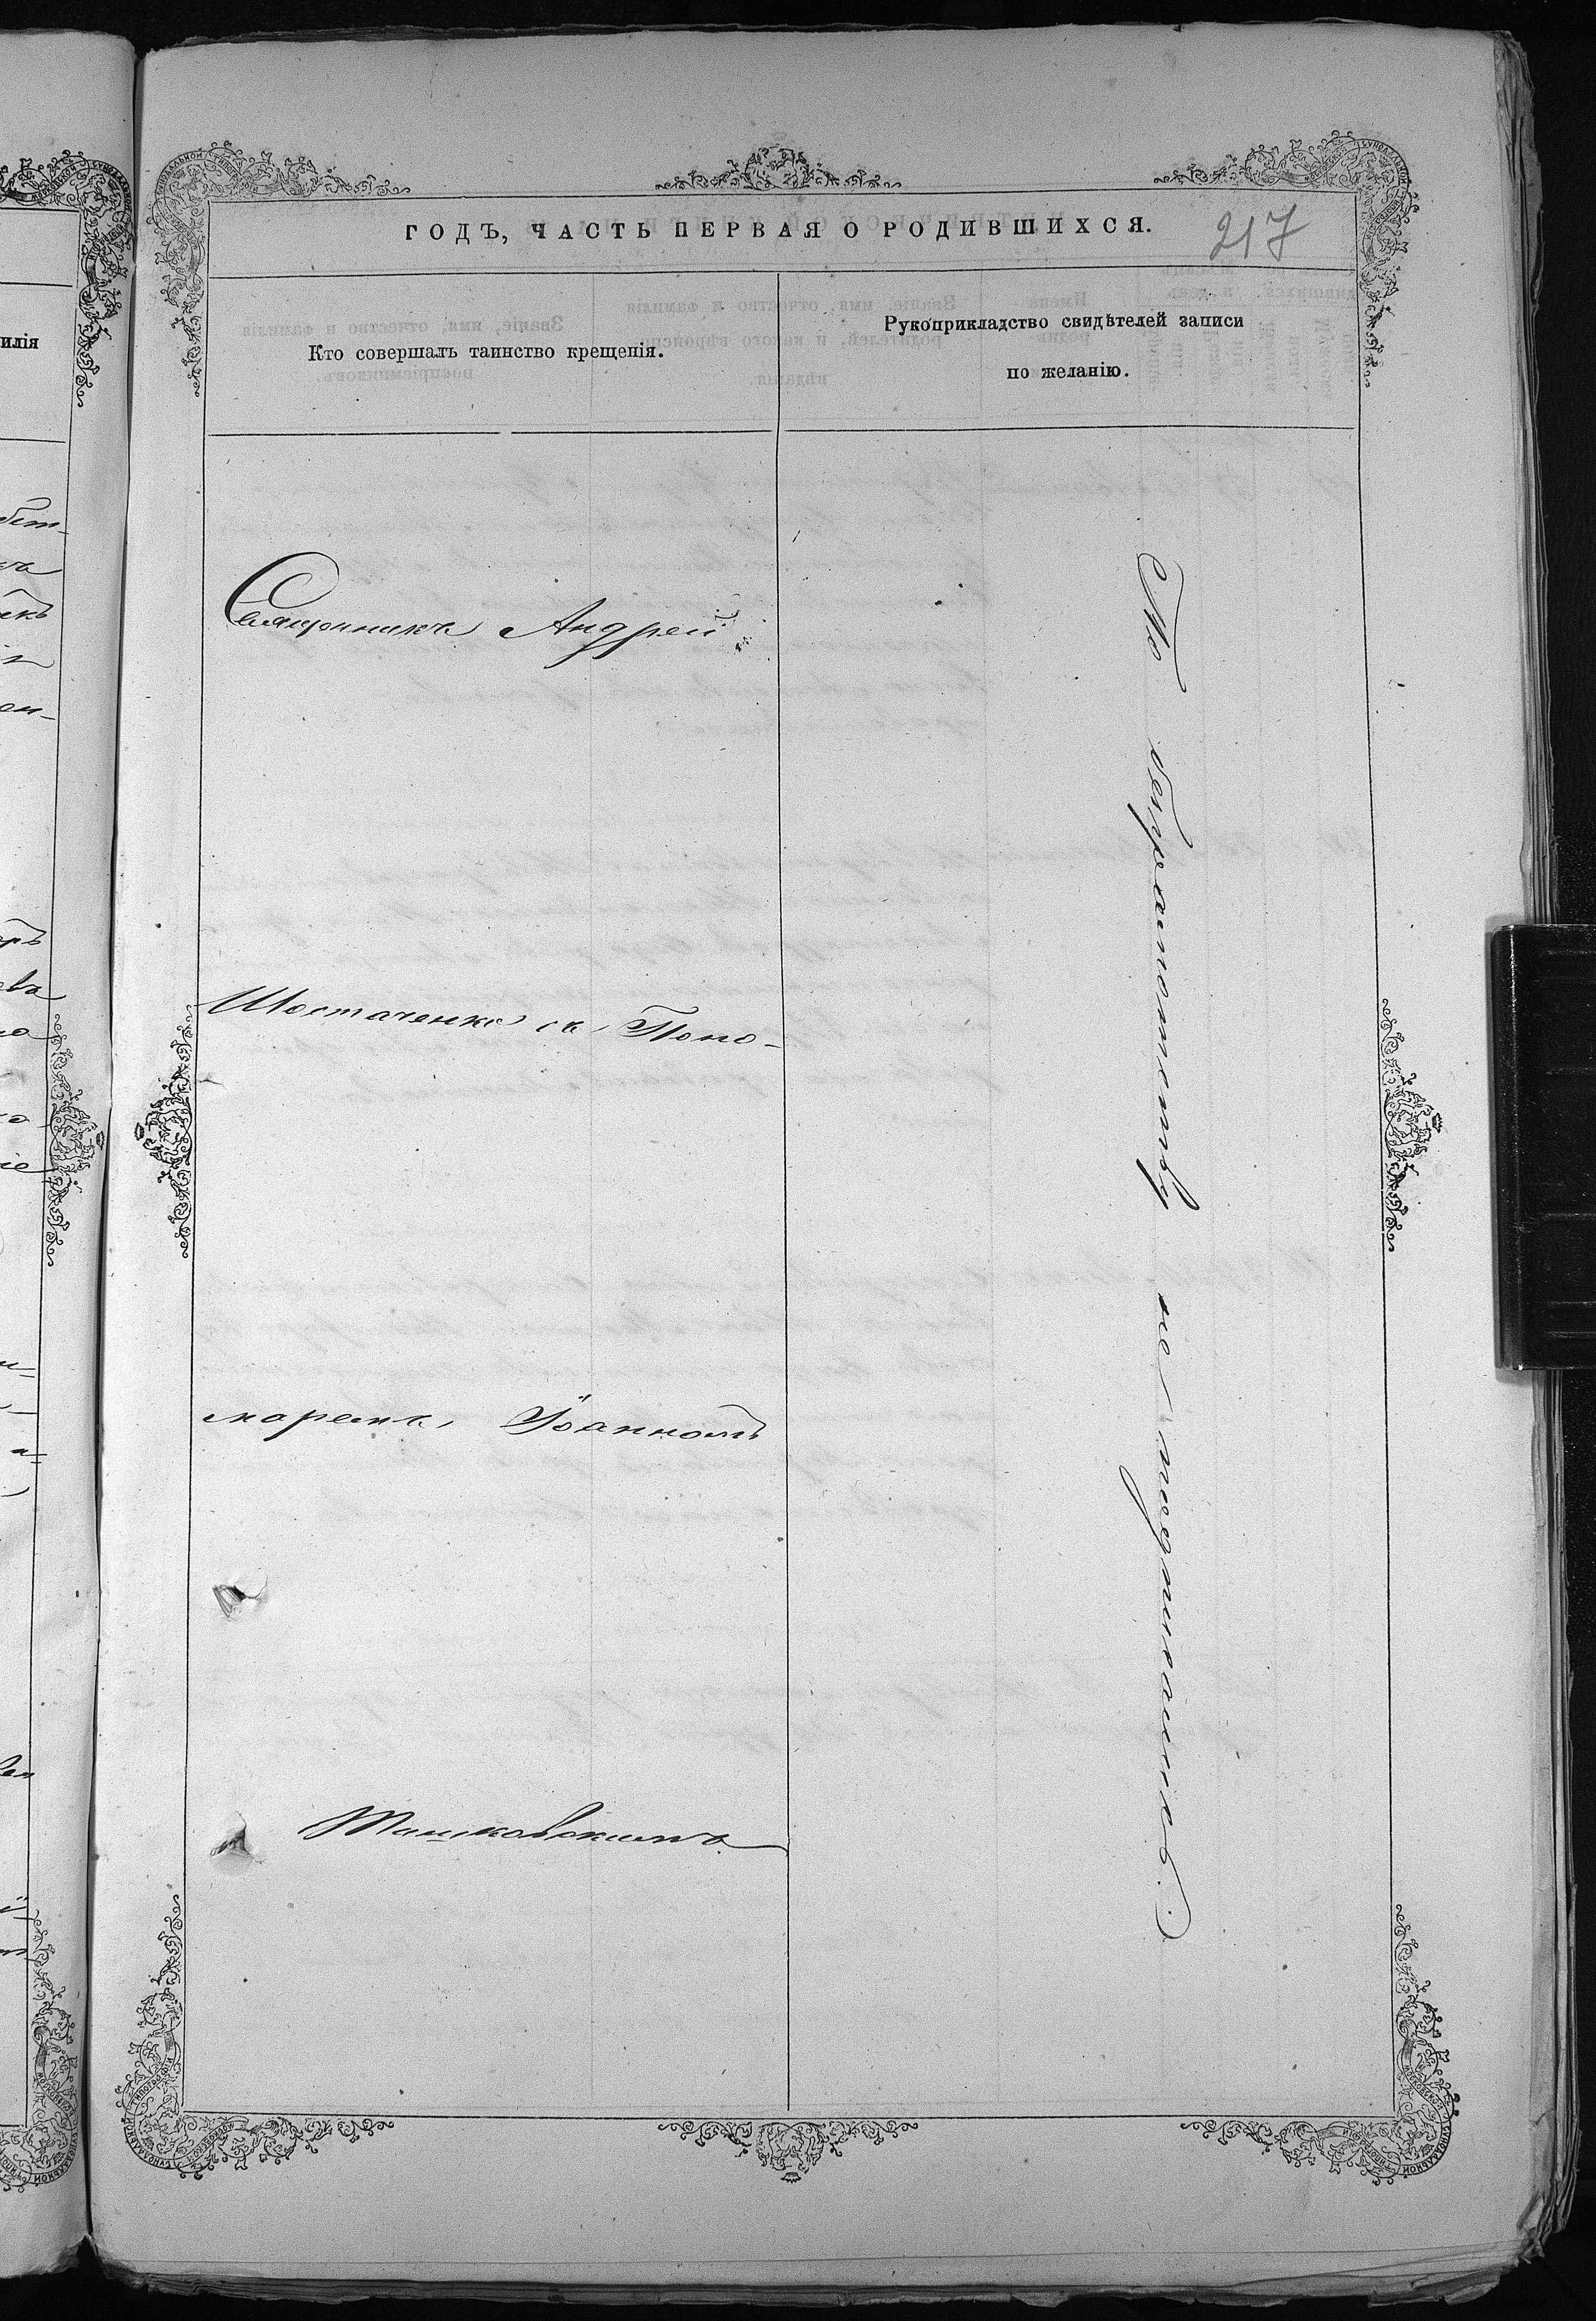 ГОДЪ, ЧАСТЬ ПЕРВАЯ О РОДИВШИХСЯ.
217
Кто совершалъ таинство крещенія.
Рукоприкладство свидѣтелей записи
по желанію.
Священникъ Андрей
Шостаченко съ Поно-
маремъ Іоанномъ
По безграмотству не подписались.
илія